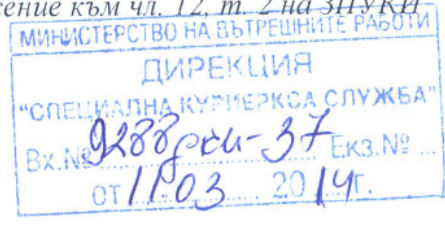 сение към чл. 12, т. 2 на ЗПУКИ
МИНИСТЕРСТВО НА ВЪТРЕШНИТЕ РАБОТИ
ДИРЕКЦИЯ
"СПЕЦИАЛНА КУРИЕРКСА СЛУЖБА"
Вх.№ 9288рси-37 Екз.№ ...
от 11.03 2014г.